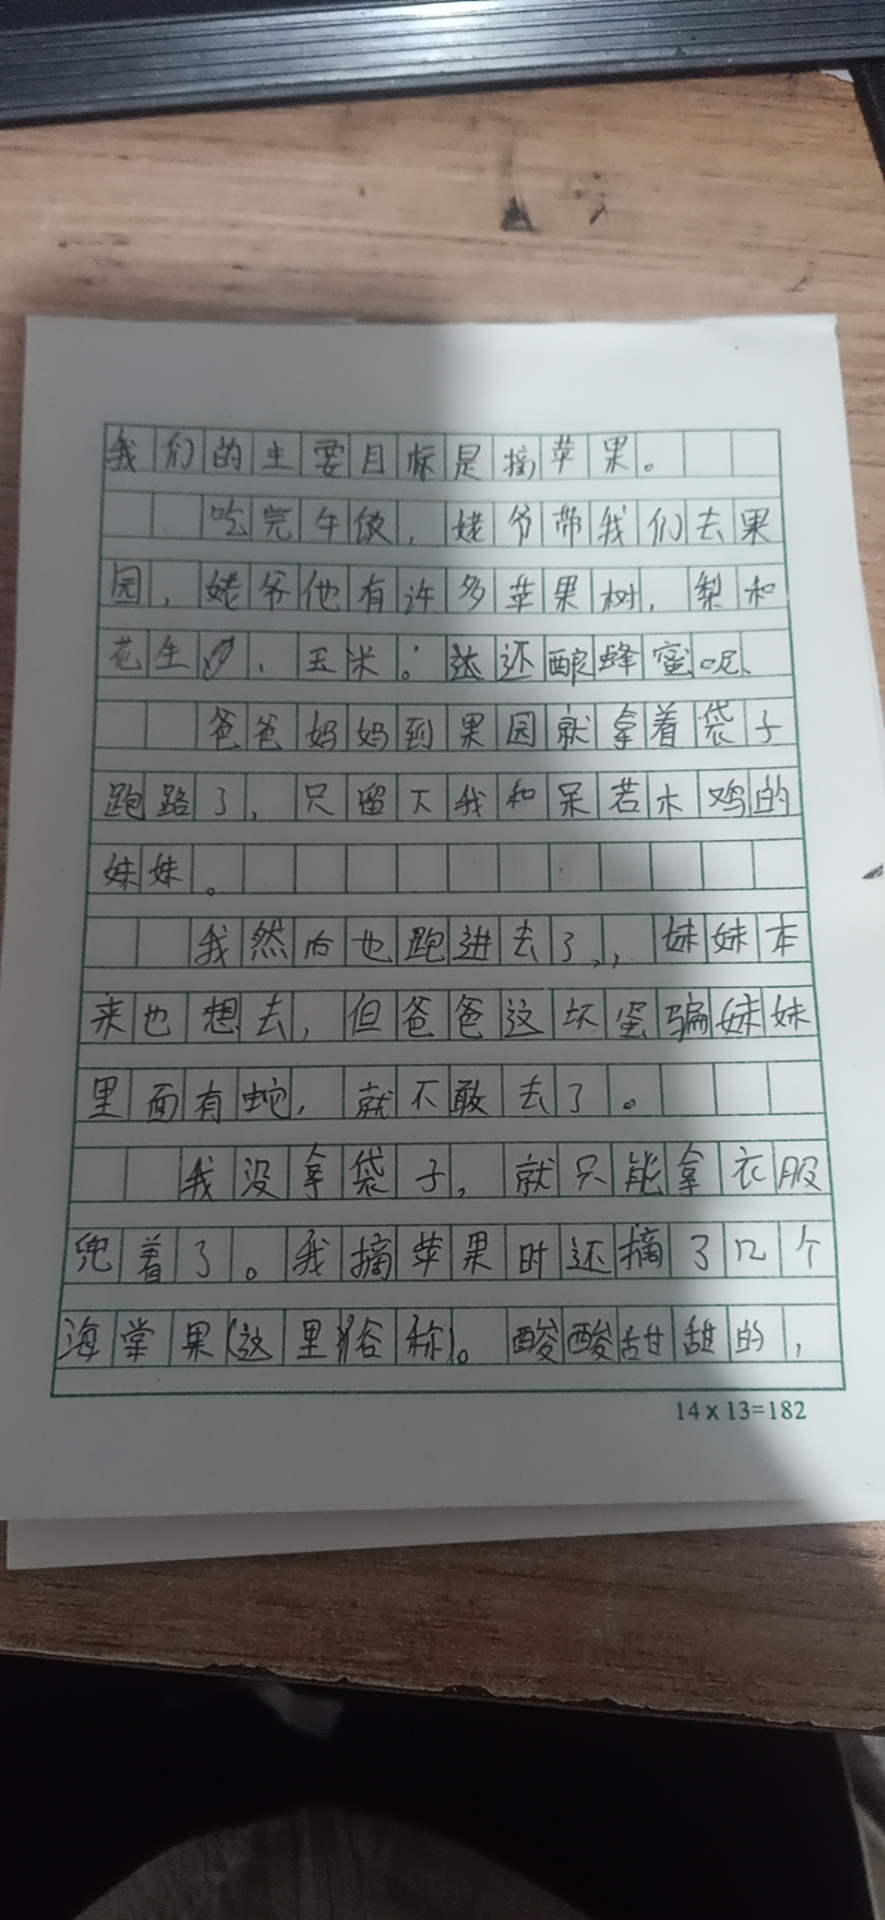 我们的主要目标是摘苹果。
吃完午饭，姥爷带我们去果
园，姥爷他有许多苹果树，梨和
花生、玉米。还酿蜂蜜呢、
爸爸妈妈到果园就拿着袋子
跑路了，只留下我和呆若木鸡的
妹妹。
我然后也跑进去了，，妹妹本
来也想去，但爸爸这坏蛋骗妹妹
里面有蛇，就不敢去了。
我没拿袋子，就只能拿衣服
兜着了。我摘苹果时还摘了几个
海棠果(这里俗称)。酸酸甜甜的，
14 x 13=182